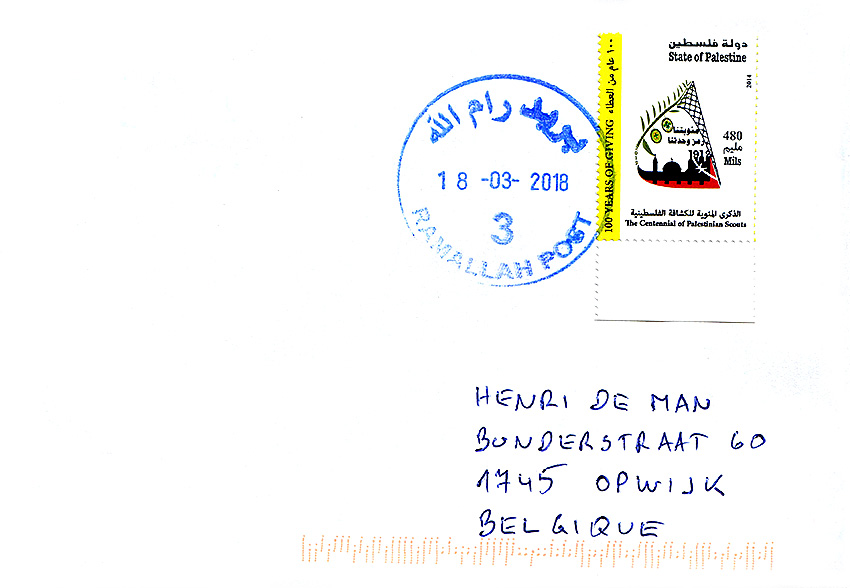 دولة فلسطين
State of Palestine
2014
١٠٠ عام من العطاء
100 YEARS OF GIVING
مئويتنا
رمز وحدتنا
1912
480
مليم
Mils
الذكرى المئوية للكشافة الفلسطينية
The Centennial of Palestinian Scouts
بريد رام الله
18 -03- 2018
3
RAMALLAH POST
HENRI DE MAN
BUNDERSTRAAT 60
1745 OPWIJK
BELGIQUE